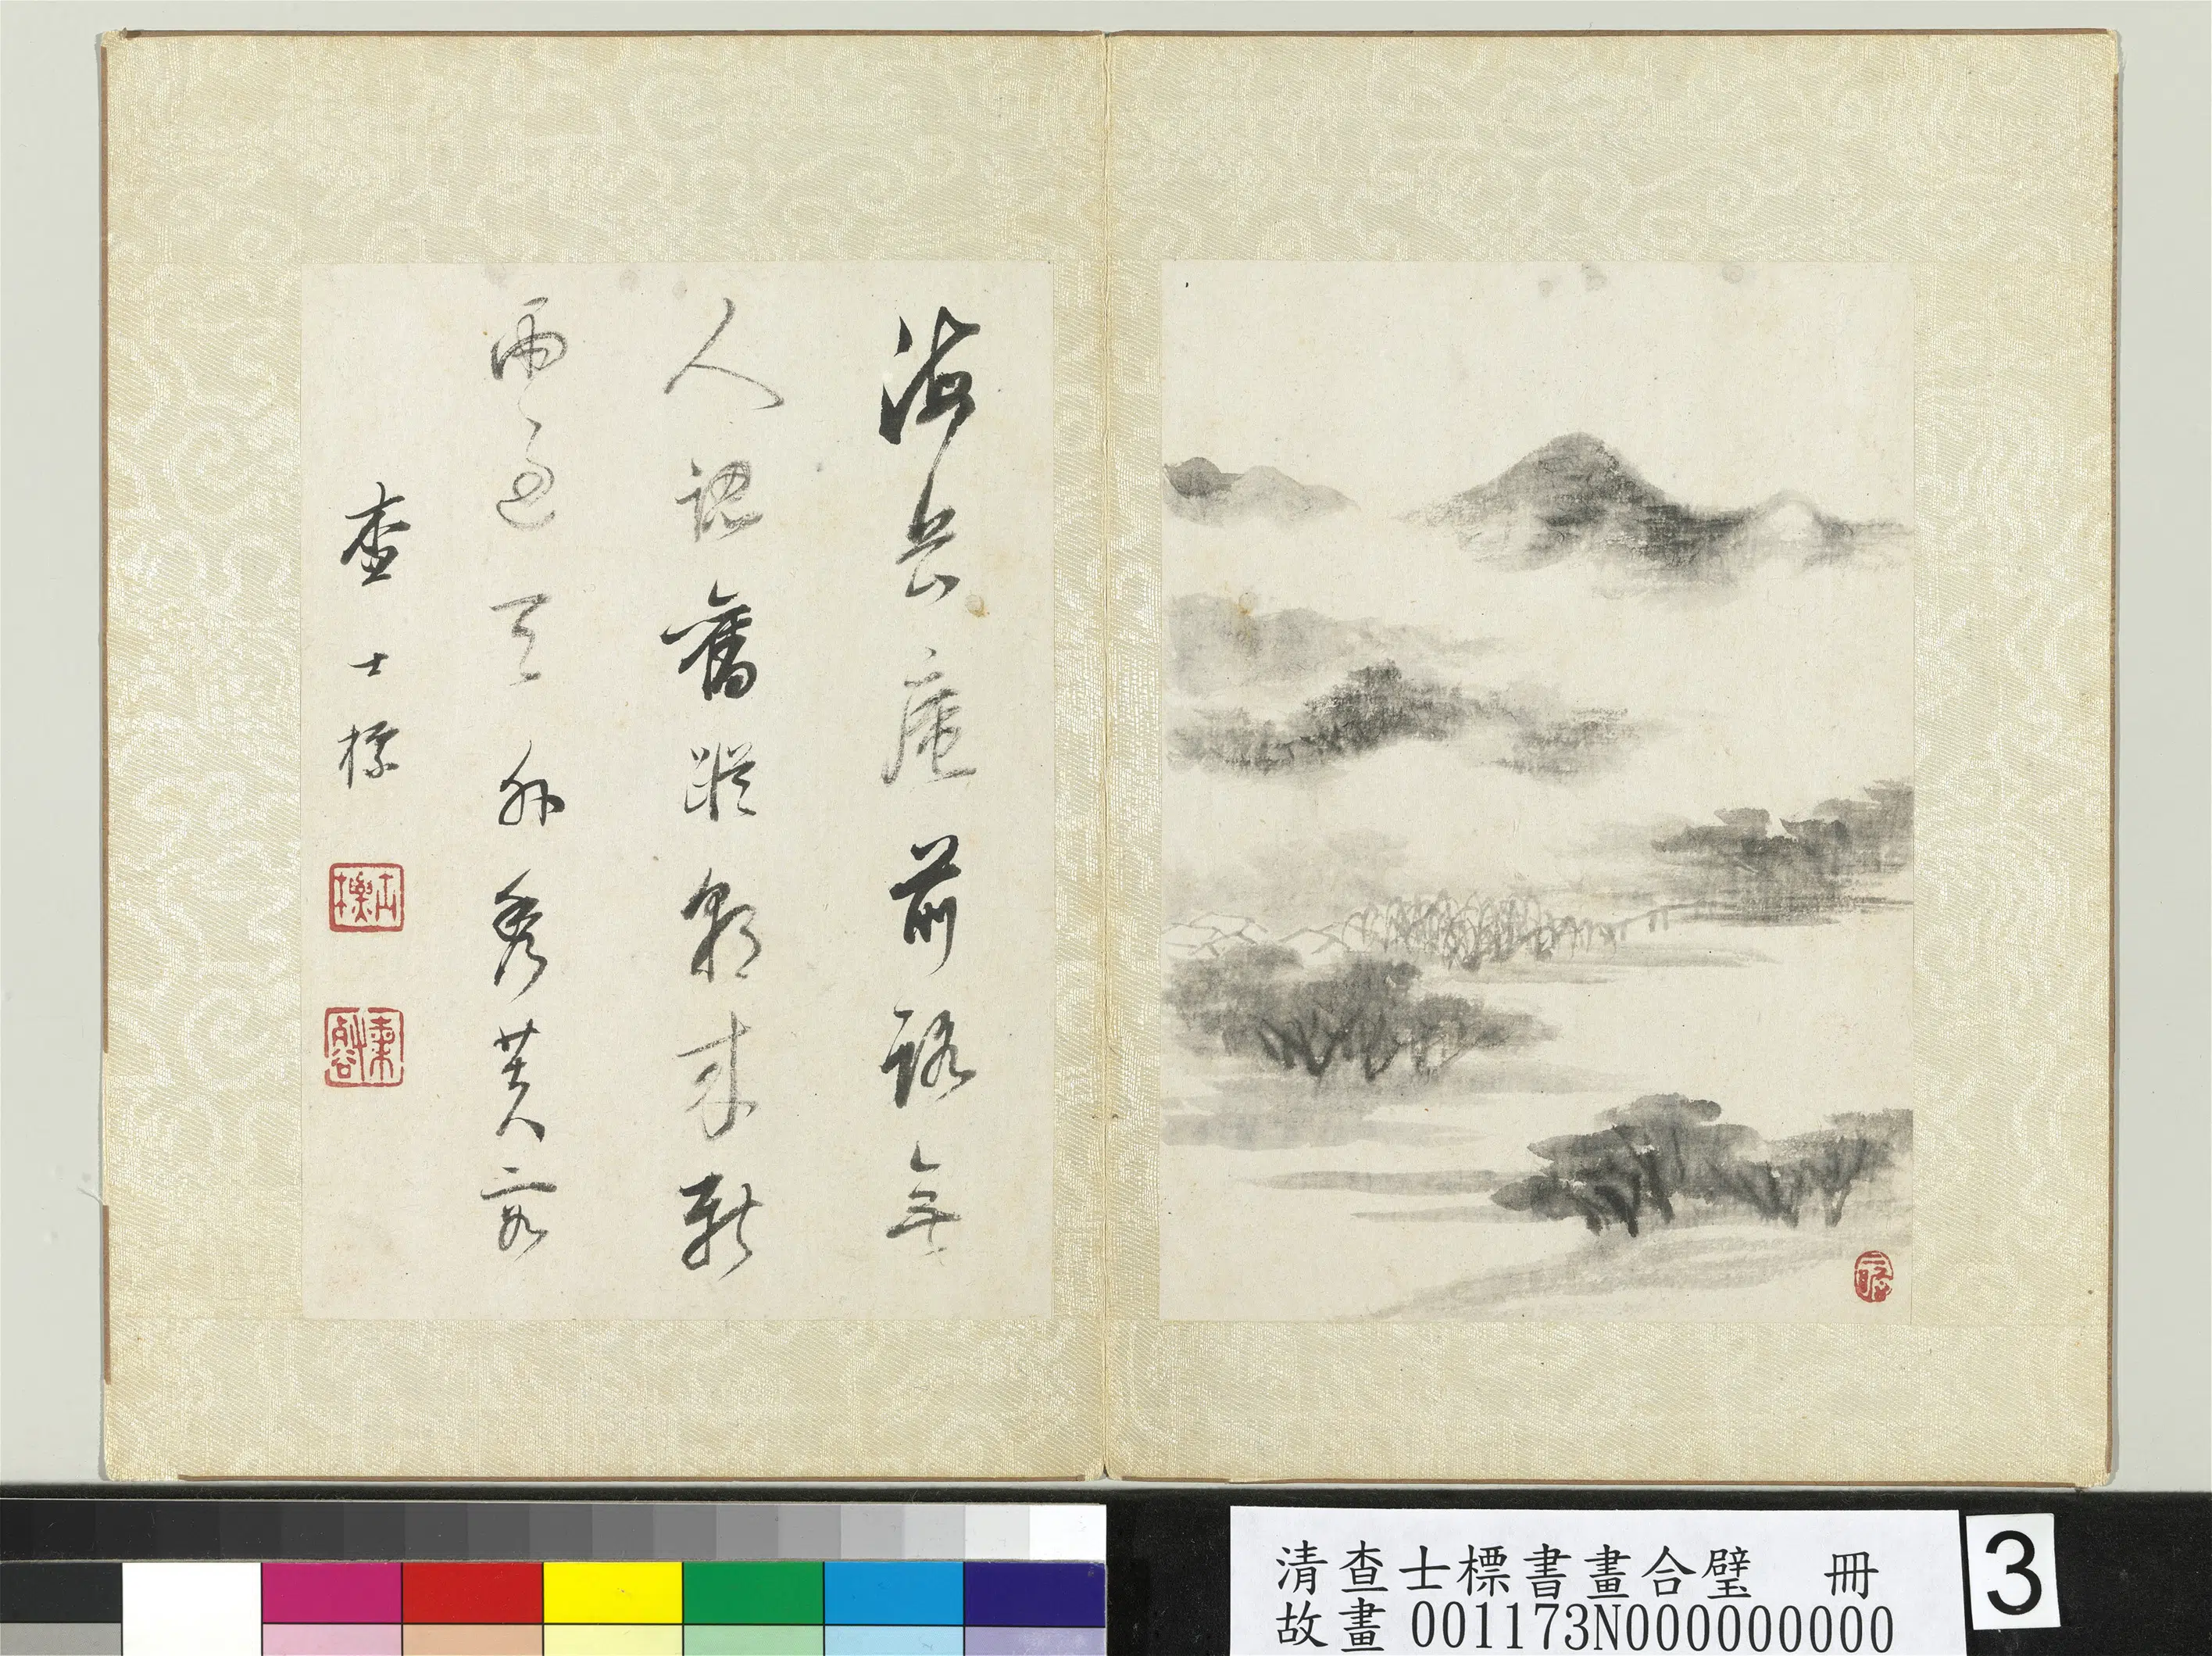 海岳庵前路無
人認舊蹤朝來新
雨過天外秀芙蓉
查士標
士標
二瞻
清查士標書畫合璧 冊
故畫 001173N000000000
3